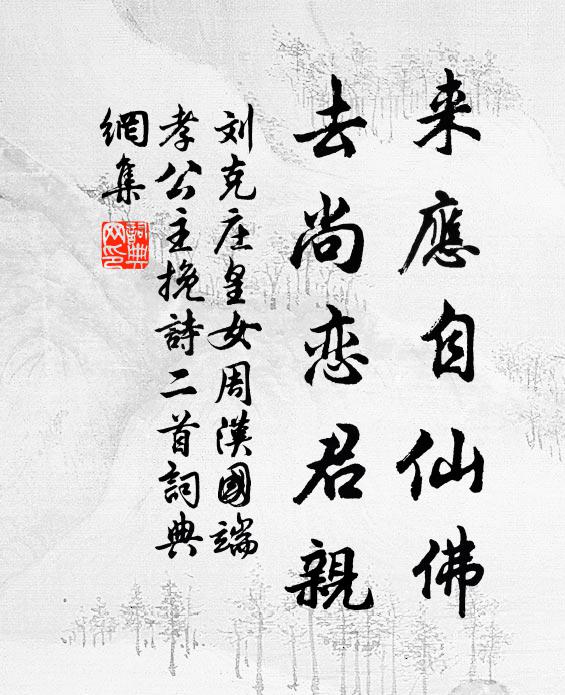 来應自仙佛
去尚恋君親
刘克庄皇女周漢國端
孝公主挽詩二首詞典
網集
詞典
网印